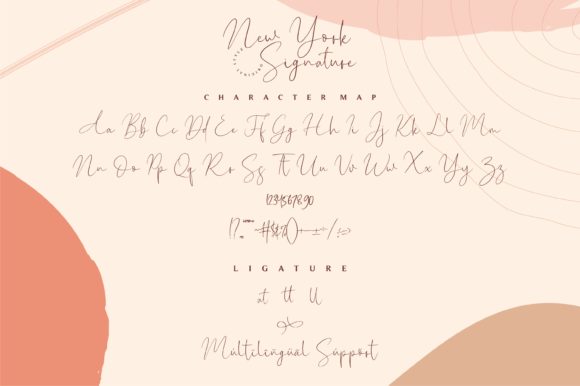 New York
Signature
CHARACTER MAP
Aa Bb Cc Dd Ee Ff Gg Hh Ii Jj Kk Ll Mm
Nn Oo Pp Qq Rr Ss Tt Uu Vv Ww Xx Yy Zz
1234567890
LIGATURE
at tt ll
Múltilingüäl Súppórt